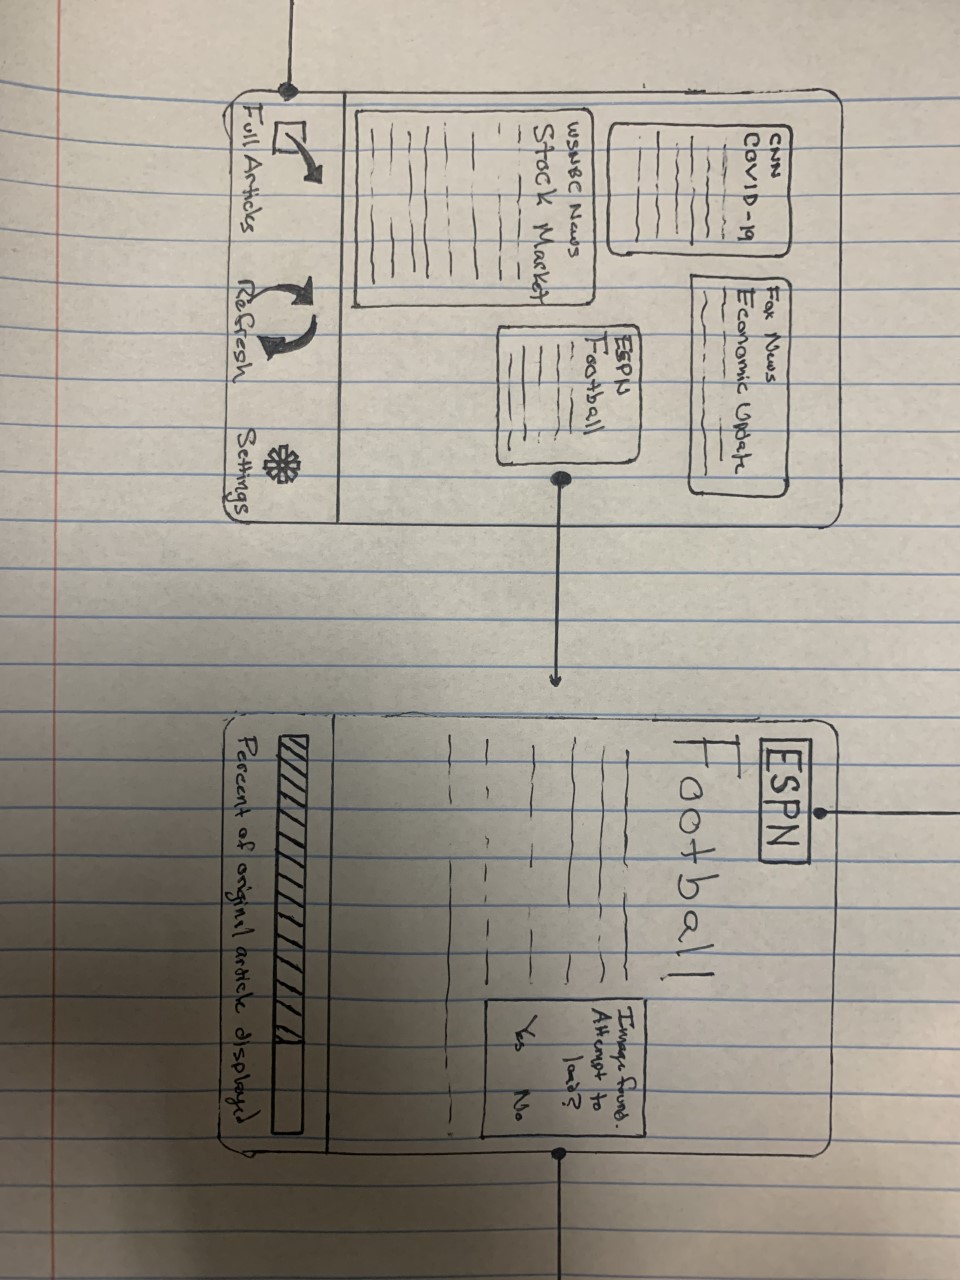 CNN
COVID-19
Fox News
Economic Update
WSNBC News
Stock Market
ESPN
Football
Full Articles
Refresh
Settings
ESPN
Football
Image found.
Attempt to
load?
Yes No
Percent of original article displayed